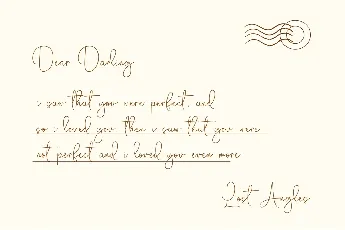 Dear Darling
i saw that you were perfect, and
so i loved you then i saw that you were
not perfect and i loved you even more
Lost Angles